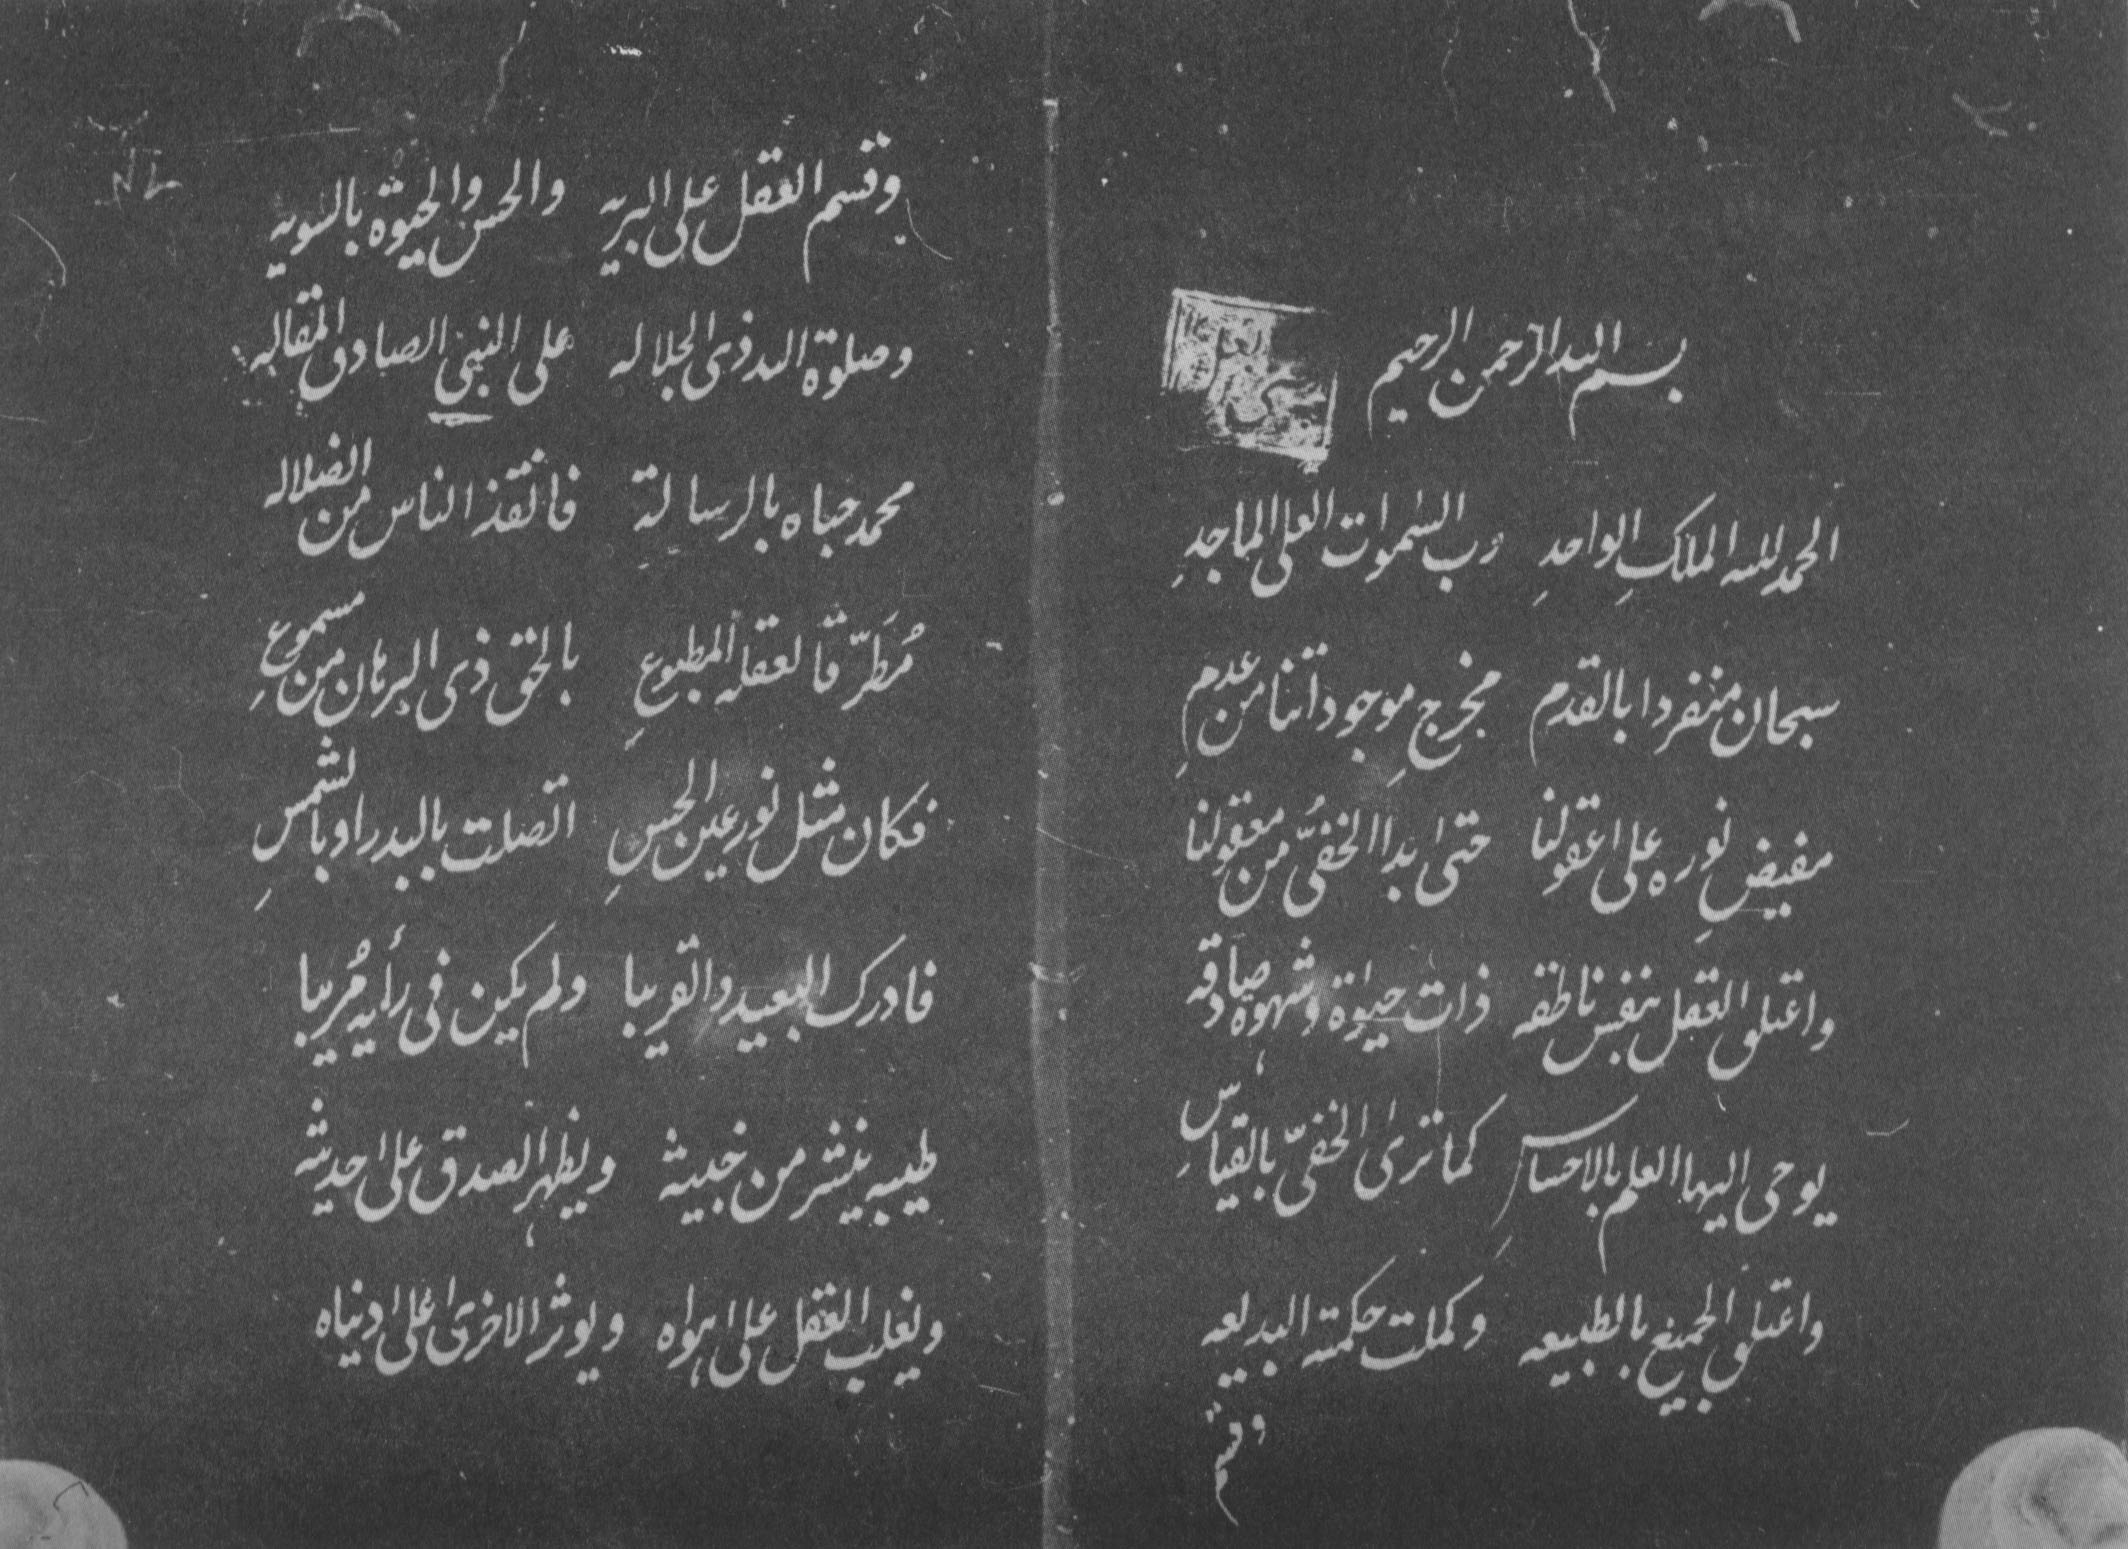 بسم الله الرحمن الرحيم
الحمد لله الملكِ الواحدِ رب السموات العلى الماجدِ
سبحان منفردا بالقدم مخرجِ موجوداتنا من عدمِ
مفيضِ نوره على عقولنا حتى بدا الخفىُّ من معقولنا
واعتلق العقل بنفس ناطقه ذات حيوة وشهوة صادقه
يوحى اليها العلم بالاحساسِ كما ترى الخفىّ بالقياسِ
واعتلق الجميع بالطبيعه وكملت حكمته البديعه
وقسم
وقسم العقل على البريه والحس والحيوة بالسويه
وصلوة الله ذى الجلاله على النبى الصادق المقاله
محمد حباه بالرسالةِ فانقذ الناس من الضلاله
مُطَرّقا لعقله المطبوعِ بالحق ذى البرهان من مسموعِ
فكان مثل نور عين الحسِ اتصلت بالبدر او بالشمسِ
فادرك البعيد والقريبا ولم يكن فى رأيه مُريبا
طيبه ينشر من خبيثه ويظهر الصدق على حديثه
ويغلب العقل على هواه ويوثر الاخرى على دنياه